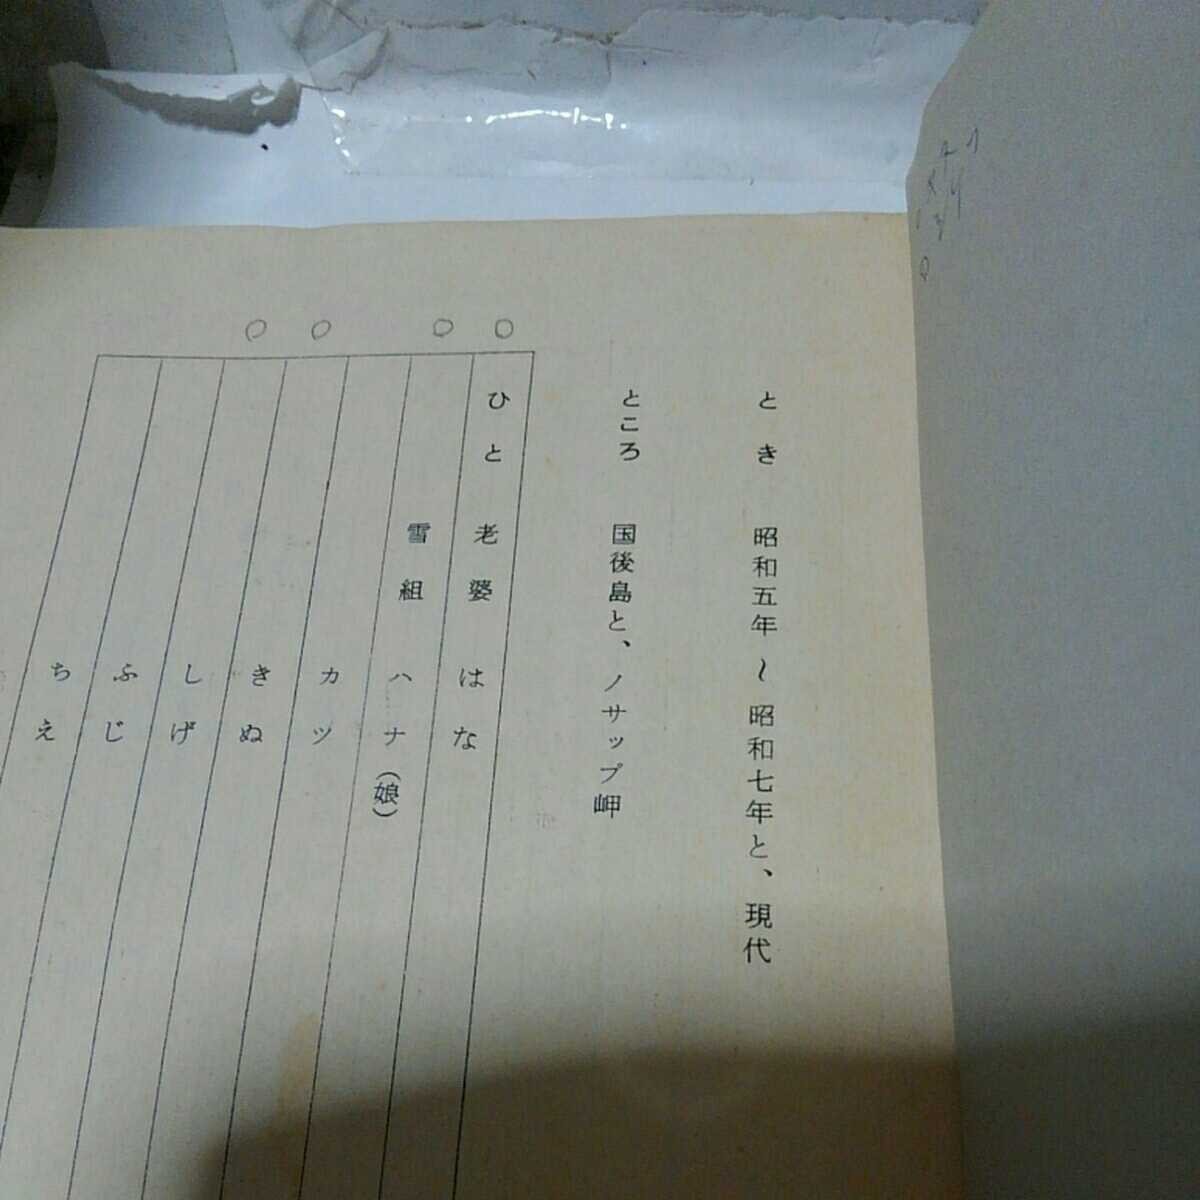 とき 昭和五年~昭和七年と、現代
ところ 国後島と、ノサップ岬
ひと 老婆 はな
雪組 ハナ(娘)
カツ
きぬ
しげ
ふじ
ちえ